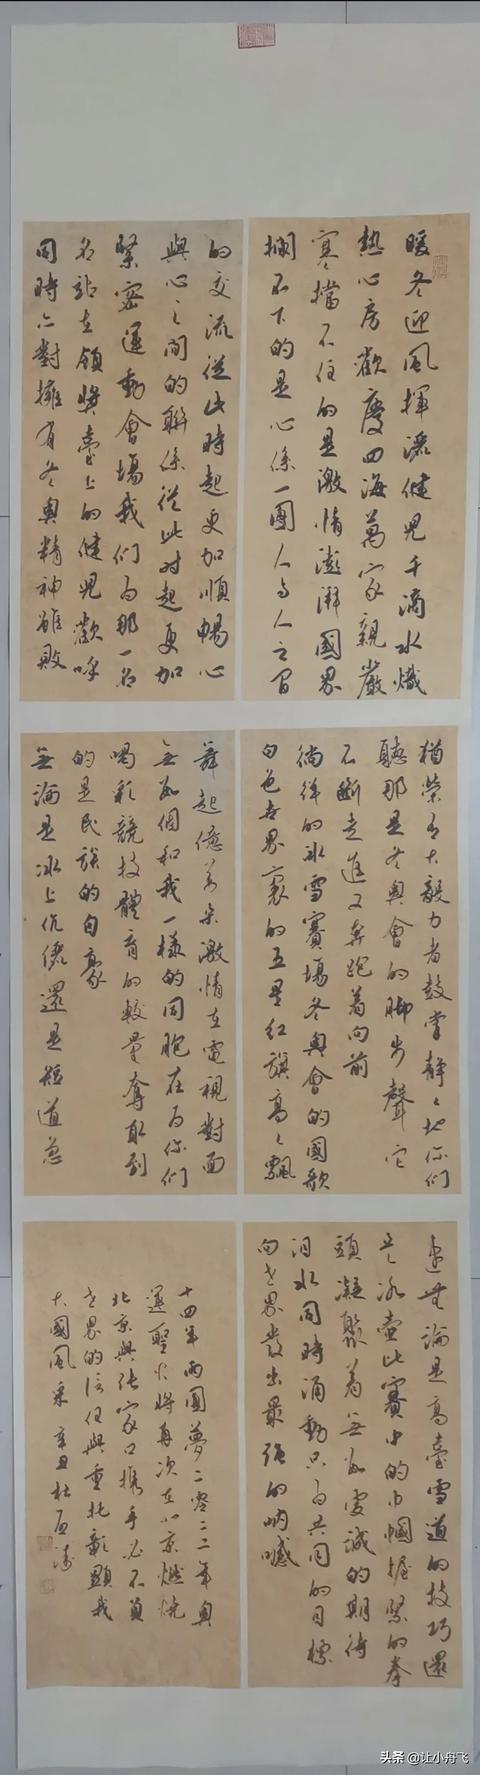 暖冬迎風揮灑健兒千滴水熾
熱心房歡慶四海萬家親嚴
寒擋不住的是激情澎湃國界
攔不下的是心係一團人与人之間
的交流從此時起更加順暢心
與心之間的聯係從此时起更加
緊密運動會場我们为那一名
名站在領獎臺上的健兒歡呼
同時亦對擁有冬奧精神雖敗
猶榮者大毅力者鼓掌靜靜地你们
聽那是冬奧會的脚步聲它
不斷走進又奔跑着向前
徜徉的冰雪賽場冬奧會的國歌
白色世界裏的五星红旗高高飄
舞起億萬朵激情在電視對面
無數個和我一樣的同胞在为你们
喝彩競技體育的較量奪取到
的是民族的自豪
無論是冰上伉儷還是短道急
速無論是高臺雪道的技巧還
是冰壶比賽中的巾幗握緊的拳
頭凝聚着無數虔誠的期待
泪水同時涌動只为共同的目標
向世界發出最强的呐喊
十四年两圓夢二零二二年奥
運聖火將再次在北京燃燒
北京與张家口携手必不負
世界的信任與重托彰顯我
大國風采 辛丑杜
头条 @让小舟飞